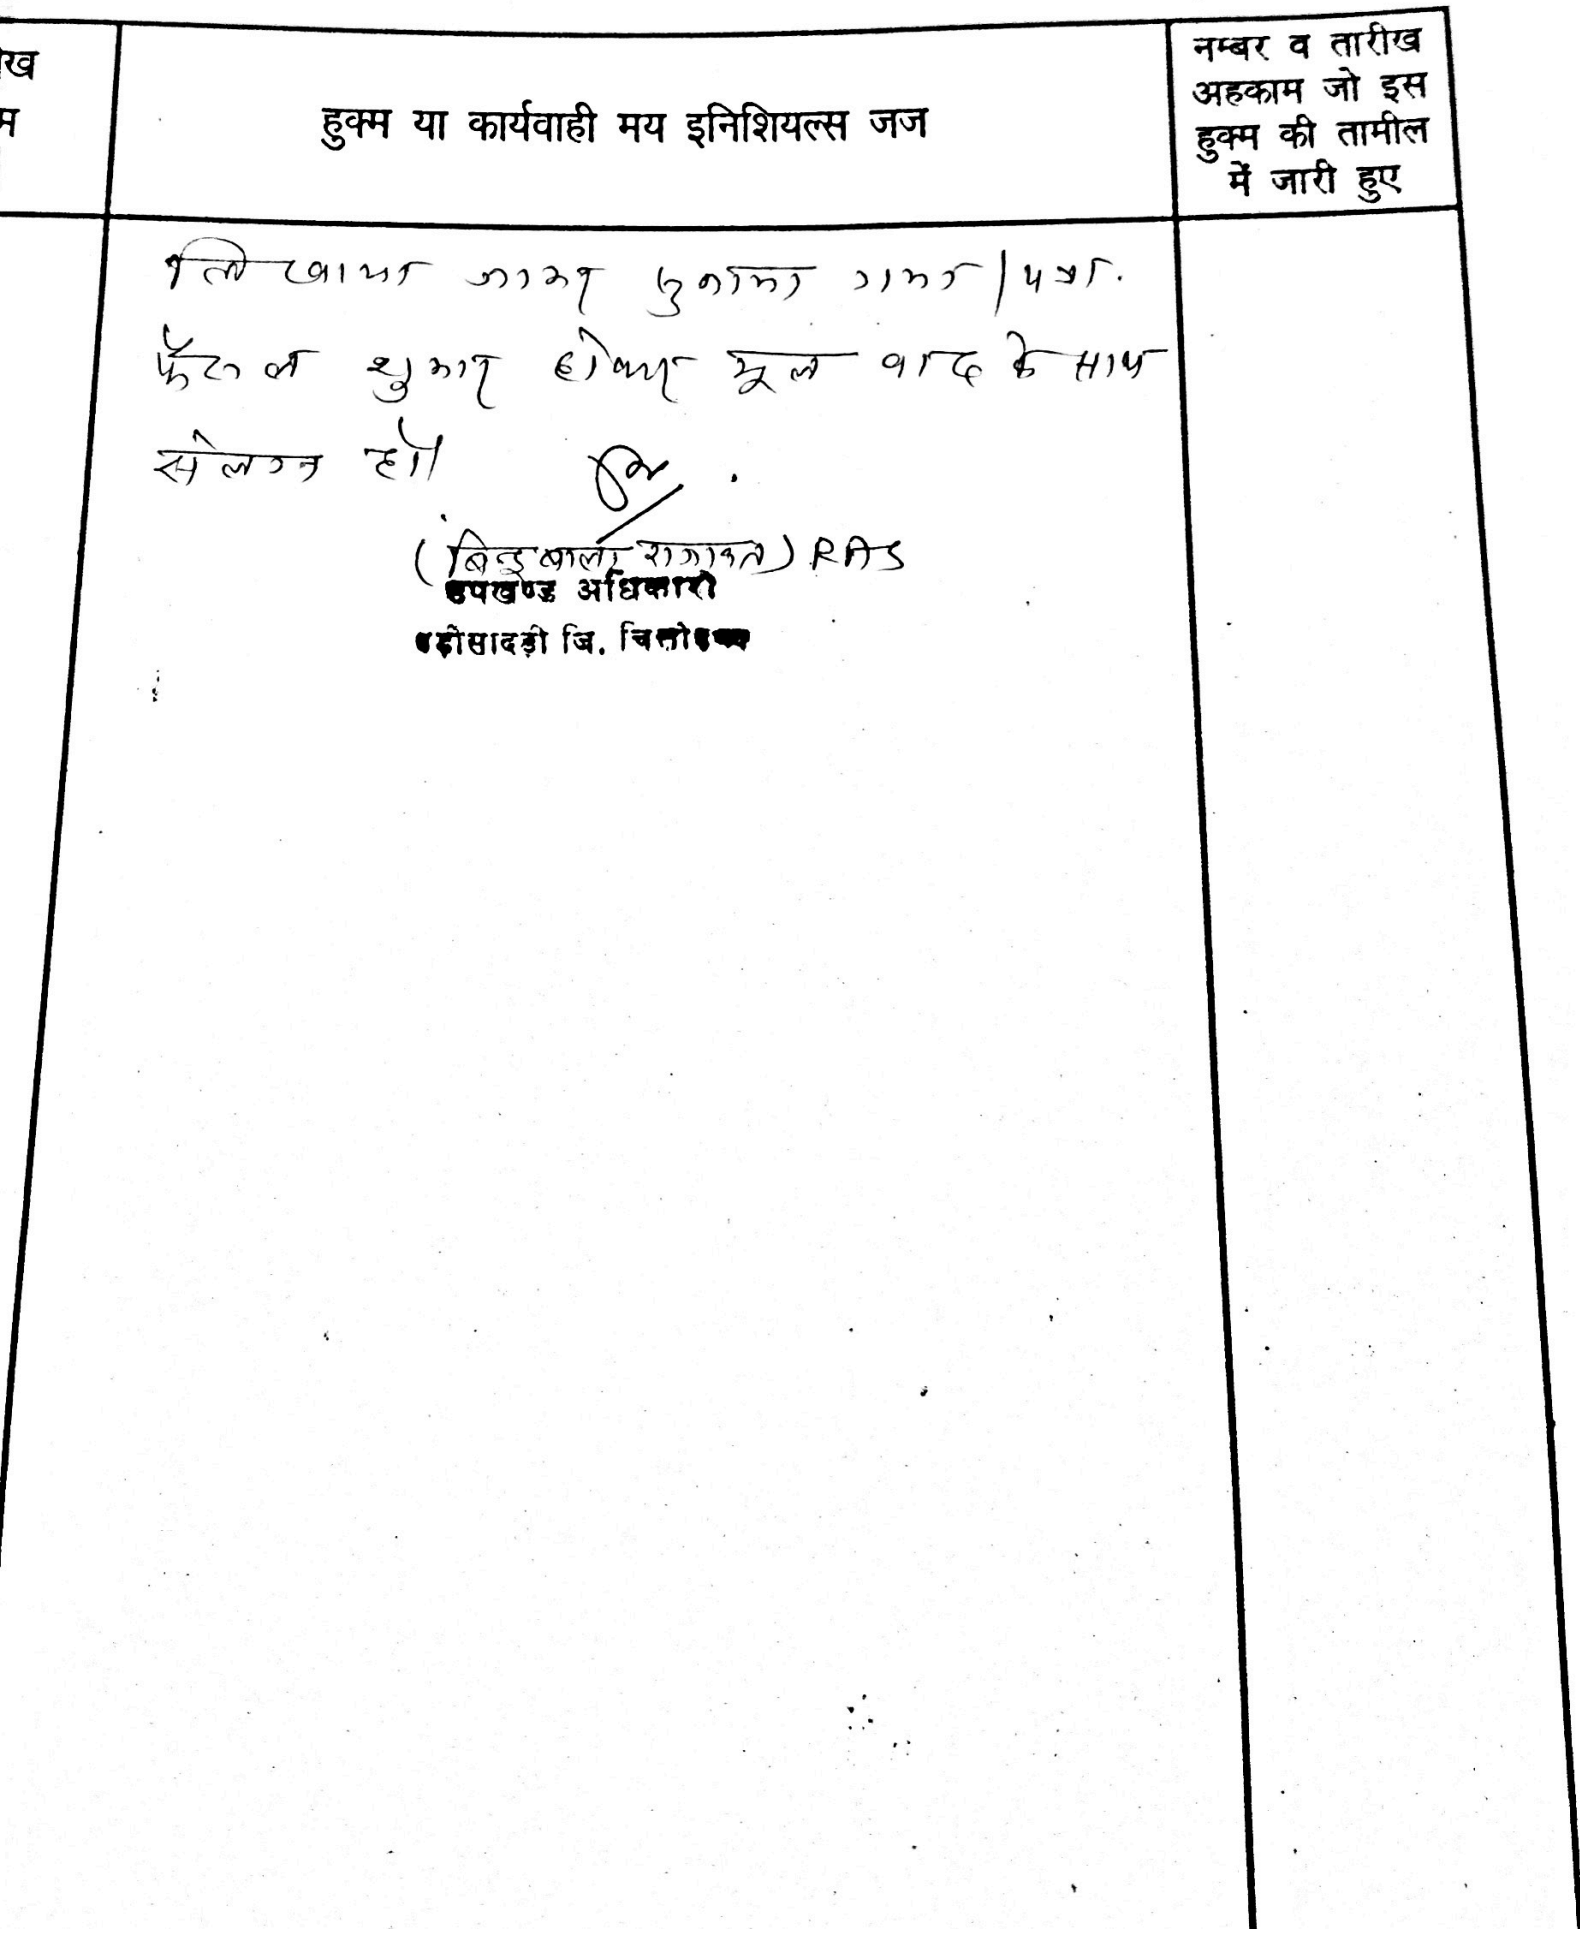 ख
म
हुक्म या कार्यवाही मय इनिशियल्स जज
नम्बर व तारीख
अहकाम जो इस
हुक्म की तामील
में जारी हुए
लिखाया जाकर सुनाया गया। पत्रा.
फैसल शुमार होकर मूल वाद के साथ
संलग्न हो।
(बिन्दुबाला राजावत) RAS
उपखण्ड अधिकारी
बड़ीसादड़ी जि. चित्तोड़गढ़